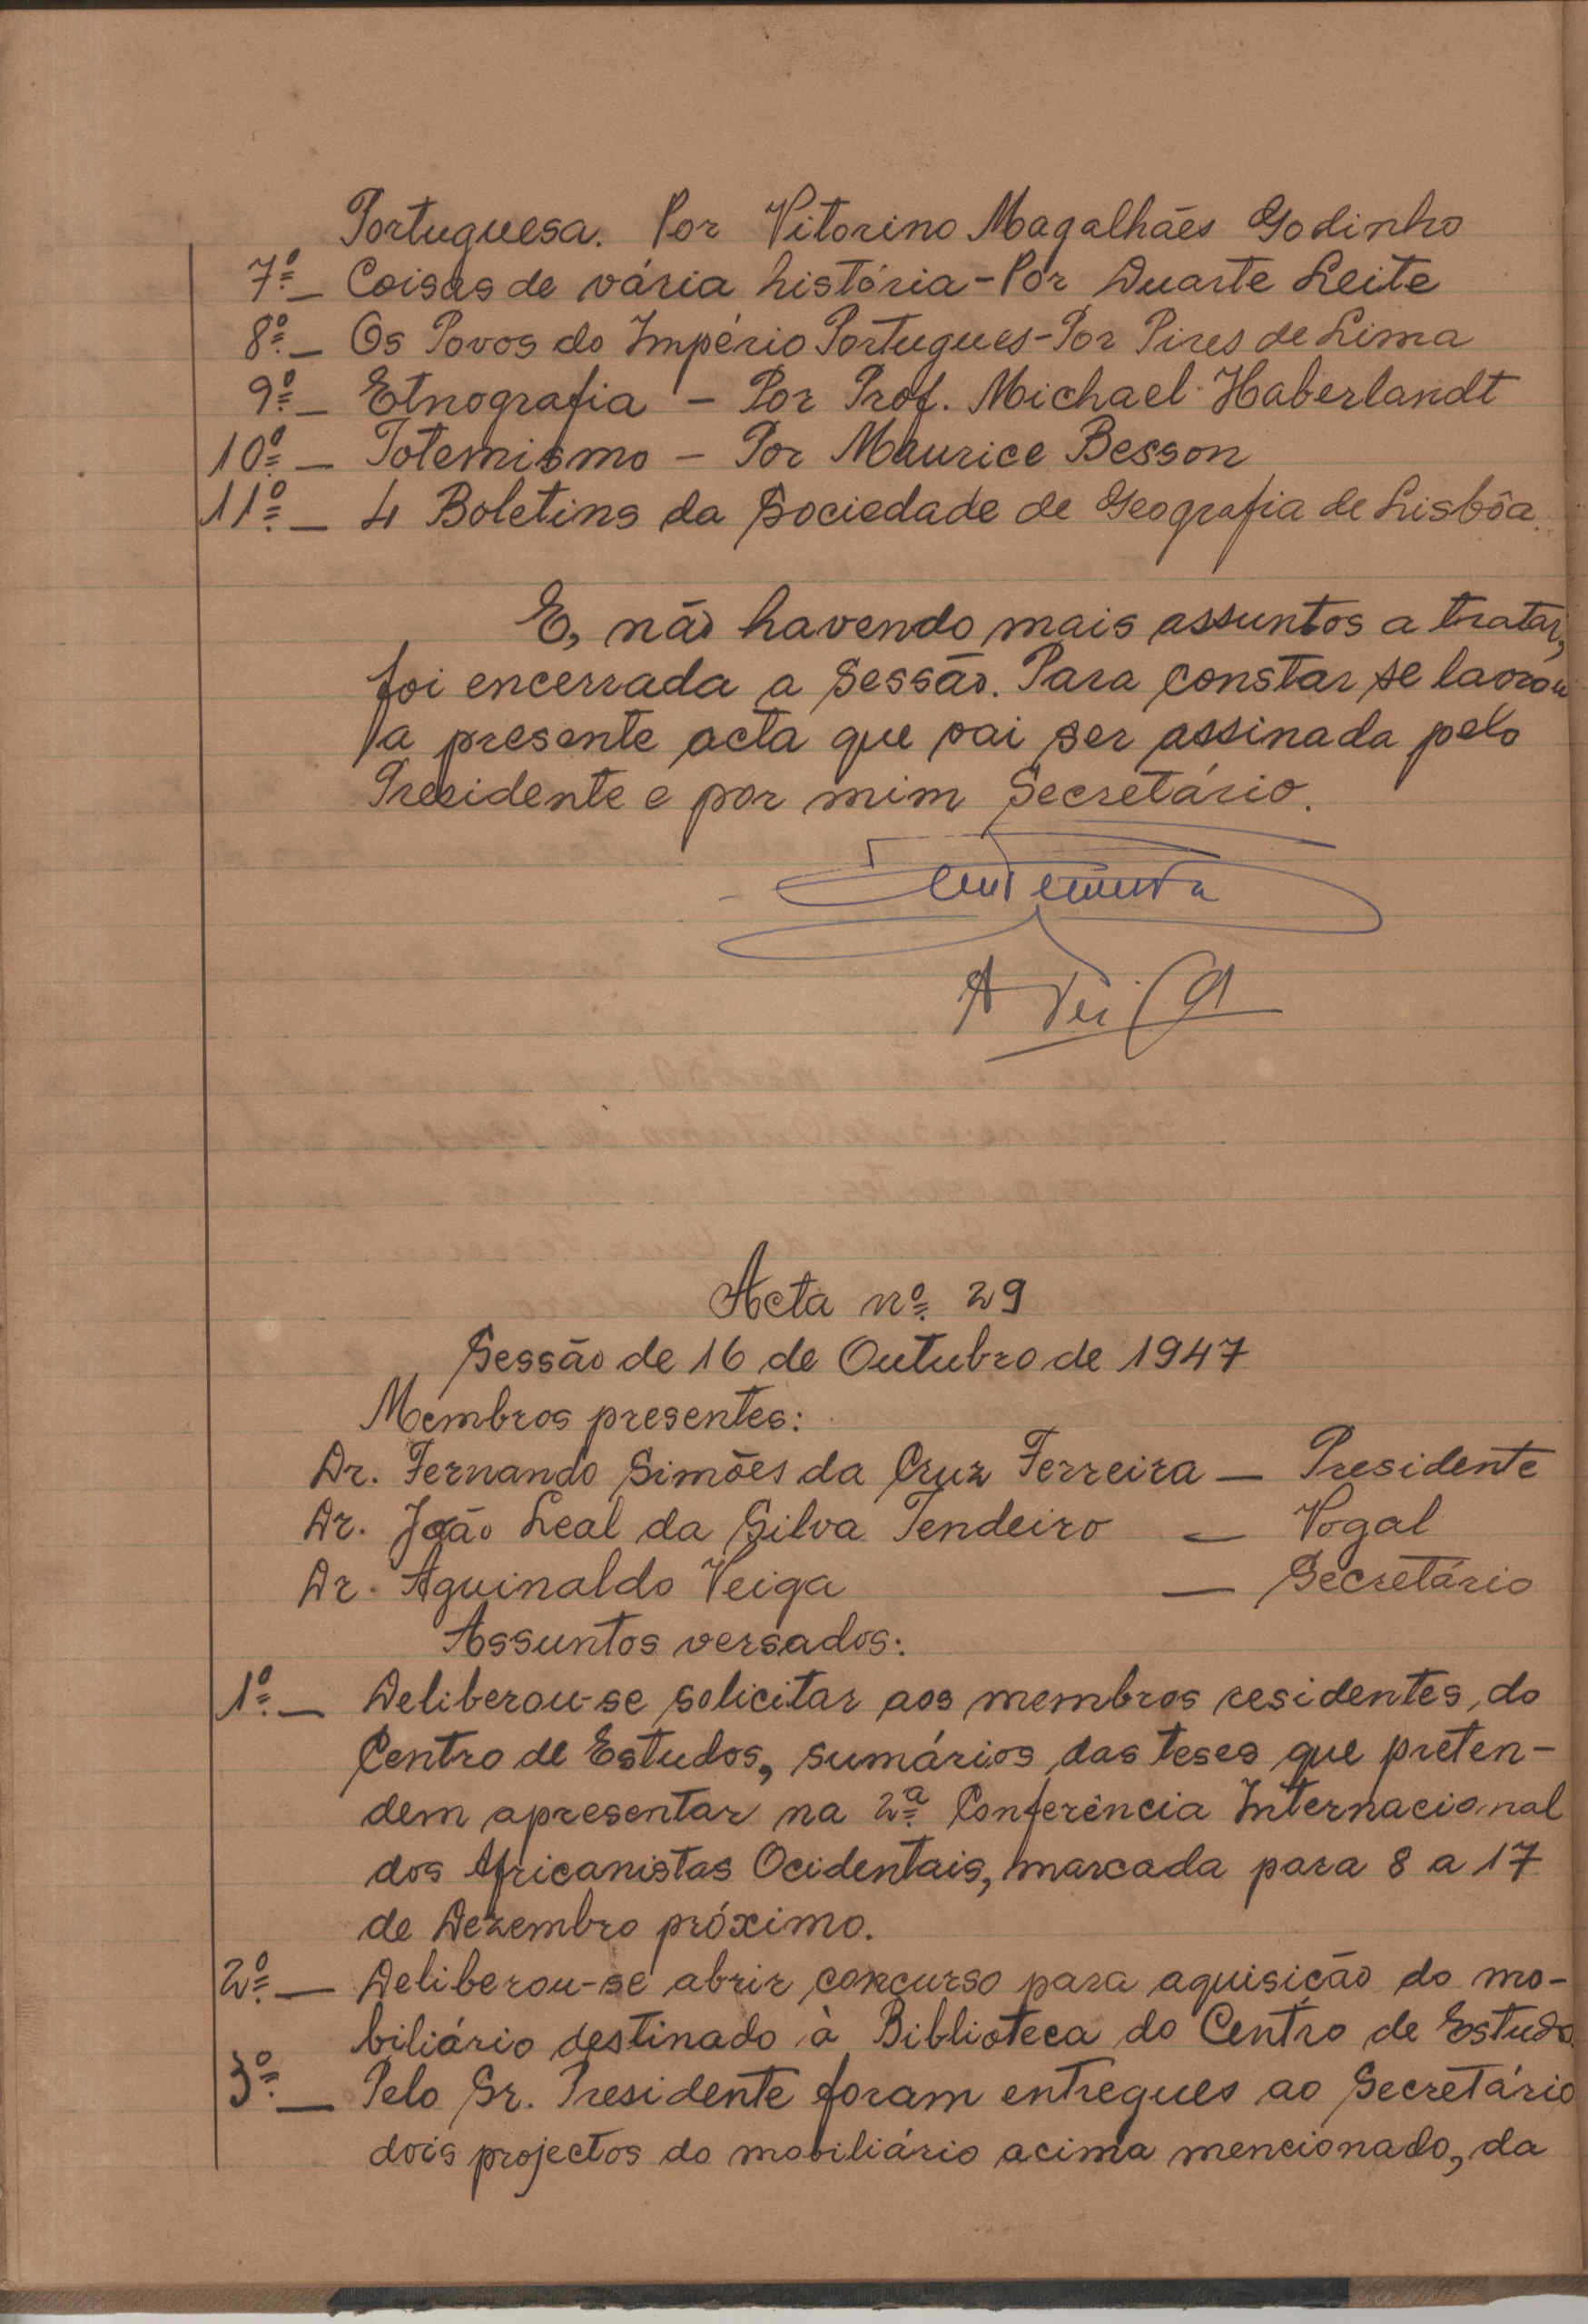 Portuguesa. Por Vitorino Magalhães Godinho
7º— Coisas de vária história - Por Duarte Leite
8º— Os Povos do Império Portugues - Por Pires de Lima
9º— Etnografia - Por Prof. Michael Haberlandt
10º— Totemismo - Por Maurice Besson
11º— 4 Boletins da Sociedade de Geografia de Lisbôa.
E, não havendo mais assuntos a tratar,
foi encerrada a Sessão. Para constar se lavrou
a presente acta que vai ser assinada pelo
Presidente e por mim Secretário.
A Veiga
Acta nº 29
Sessão de 16 de Outubro de 1947
Membros presentes:
Dr. Fernando Simões da Cruz Ferreira — Presidente
Dr. João Leal da Silva Tendeiro — Vogal
Dr. Aguinaldo Veiga — Secretário
Assuntos versados:
1º— Deliberou-se solicitar aos membros residentes, do
Centro de Estudos, sumários das teses que preten-
dem apresentar na 2ª Conferência Internacional
dos Africanistas Ocidentais, marcada para 8 a 17
de Dezembro próximo.
2º— Deliberou-se abrir concurso para aquisição do mo-
biliário destinado à Biblioteca do Centro de Estudo
3º— Pelo Sr. Presidente foram entregues ao Secretário
dois projectos do mobiliário acima mencionado, da